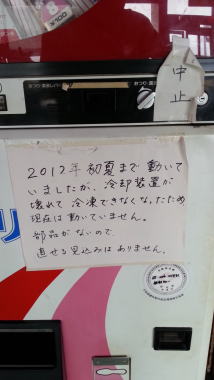 中止
2012年 初夏まで 動いて
いましたが、冷却装置が
壊れて 冷凍できなくなったため
現在は 動いていません。
部品がないので、
直せる 見込みは ありません。